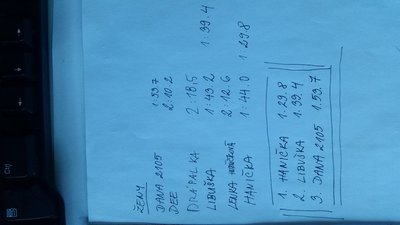 ŽENY
DANA 2105 1:59.7
DEE 2:10.2
DRÁPALKA 2:18,5
LIBUŠKA 1:43.2 1:39.4
LENKA 2:12.6
HANIČKA 1:44.0 1:29.8
1. HANIČKA 1.29.8
2. LIBUŠKA 1.39.4
3. DANA 2105 1.59.7